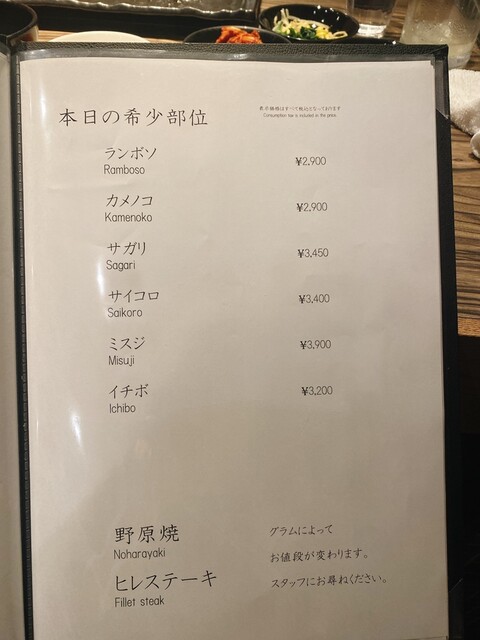 本日の希少部位
表示価格はすべて税込となっております
Consumption tax is included in the price
ランボソ
Ramboso
¥2,900
カメノコ
Kamenoko
¥2,900
サガリ
Sagari
¥3,450
サイコロ
Saikoro
¥3,400
ミスジ
Misuji
¥3,900
イチボ
Ichibo
¥3,200
野原焼
Noharayaki
ヒレステーキ
Fillet steak
グラムによって
お値段が変わります。
スタッフにお尋ねください。